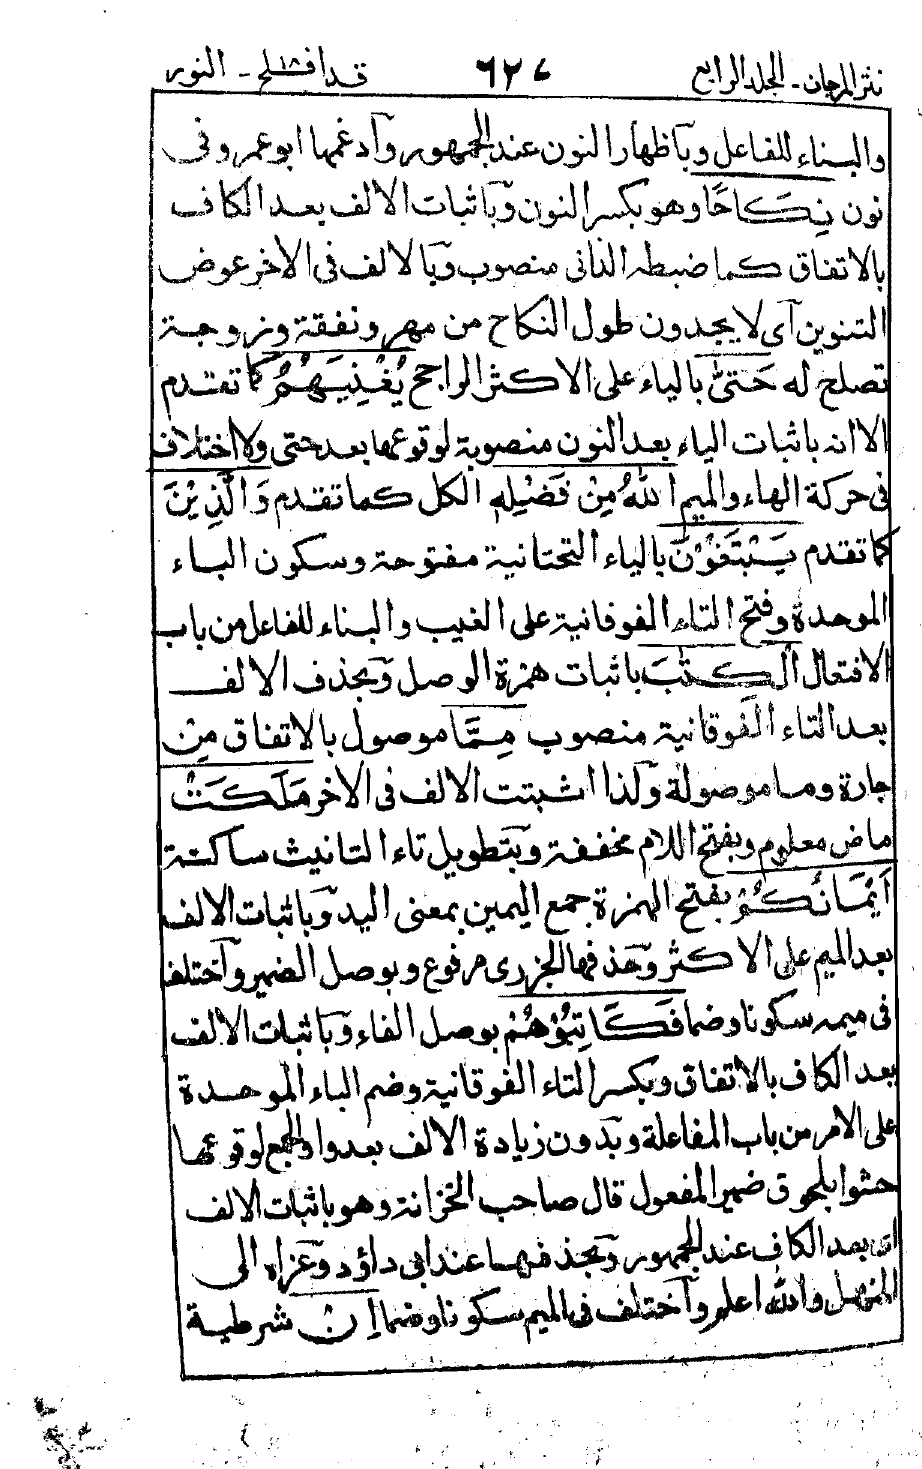 نثر المرجان - الجلد الرابع ٦٢٧ قد افلح ١٨ - النور
والبناء للفاعل وبآظهار النون عند الجمهور وآدغمها ابو عمرو فى
نون نِكَاحًا وهو بكسر النون وبآثبات الالف بعد الكاف
بالاتفاق كما ضبطه الدانى منصوب وبالالف فى الاخر عوض
التنوين آى لا يجدون طول النكاح من مهر ونفقة وزوجة
تصلح له حَتّٰى بالياء على الاكثر الراجح يُغْنِيَهُمُ كما تقدم
الا انه باثبات الياء بعد النون منصوبة لوقوعها بعد حتى ولا اختلاف
فى حركة الهاء والميم اللّٰهُ مِنْ فَضْلِهٖ الكل كما تقدم وَالَّذِيْنَ
كما تقدم يَبْتَغُوْنَ بالياء التحتانية مفتوحة وسكون الباء
الموحدة وفتح التاء الفوقانية على الغيب والبناء للفاعل من باب
الافتعال الْكِتٰبَ باثبات همزة الوصل وبحذف الالف
بعد التاء الفوقانية منصوب مِمَّا موصول بالاتفاق مِنْ
جارة وما موصولة ولذا اثبتت الالف فى الاخر مَلَكَتْ
ماض معلوم وبفتح اللام مخففة وبتطويل تاء التانيث ساكنة
اَيْمَانُكُمْ بفتح الهمزة جمع اليمين بمعنى اليد وباثبات الالف
بعد الميم على الاكثر وحذفها الجزرى مرفوع وبوصل الضمير وآختلف
فى ميمه سكونا وضما فَكَاتِبُوْهُمْ بوصل الفاء وباثبات الالف
بعد الكاف بالاتفاق وبكسر التاء الفوقانية وضم الباء الموحدة
على الامر من باب المفاعلة وبدون زيادة الالف بعد واو الجمع لوقوعها
حشوا بلحوق ضمير المفعول قال صاحب الخزانة وهو باثبات الالف
اى بعد الكاف عند الجمهور وبحذفها عند ابى داؤد وعزاه الى
المنهل والله اعلم وآختلف فى الميم سكونا وضما اِنْ شرطية